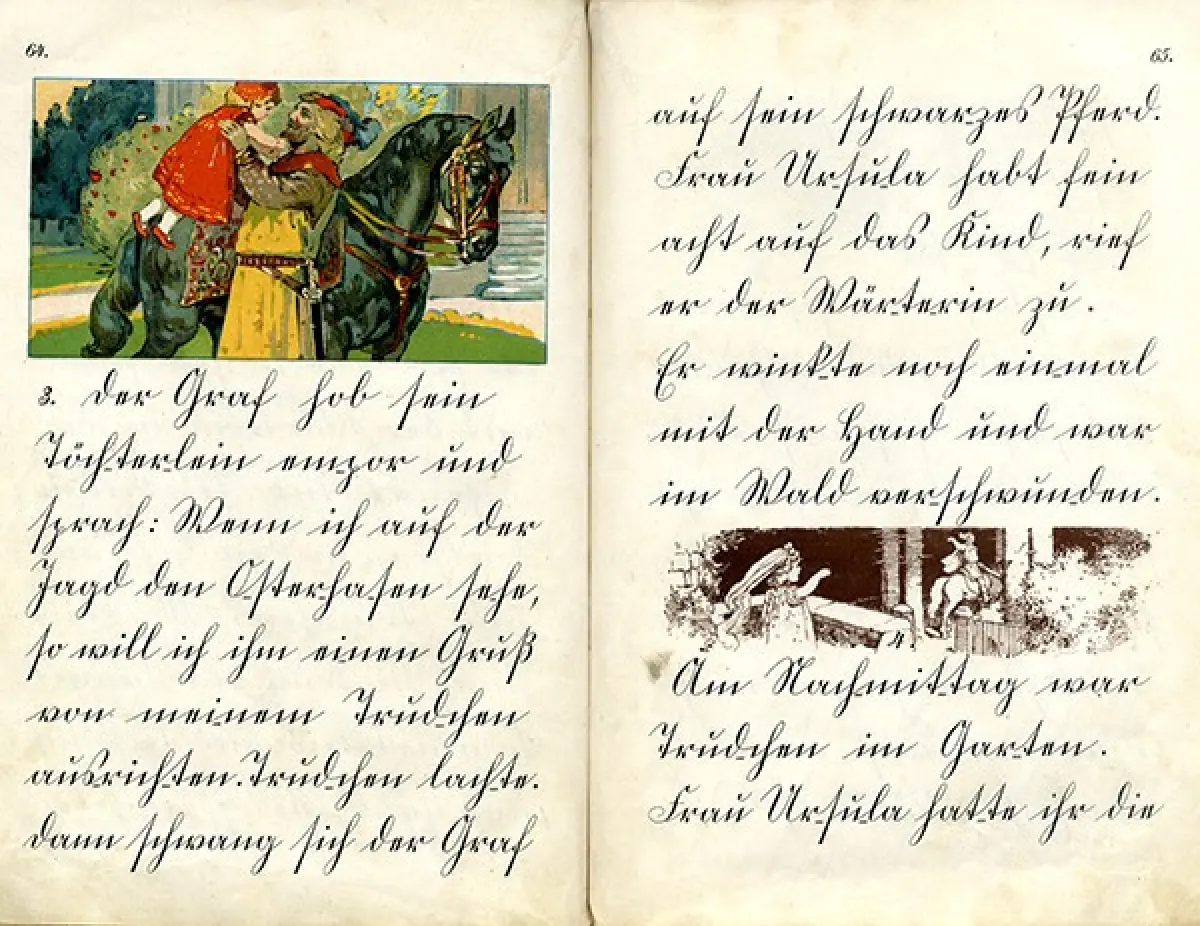 64.
3. Der Graf hob sein
Töchterlein empor und
sprach: Wenn ich auf der
Jagd den Osterhasen sehe,
so will ich ihm einen Gruß
von meinem Trudchen
ausrichten. Trudchen lachte.
Dann schwang sich der Graf
65.
auf sein schwarzes Pferd.
Frau Ursula habt fein
acht auf das Kind, rief
er der Wärterin zu.
Er winkte noch einmal
mit der Hand und war
im Wald verschwunden.
4.
Am Nachmittag war
Trudchen im Garten.
Frau Ursula hatte ihr die